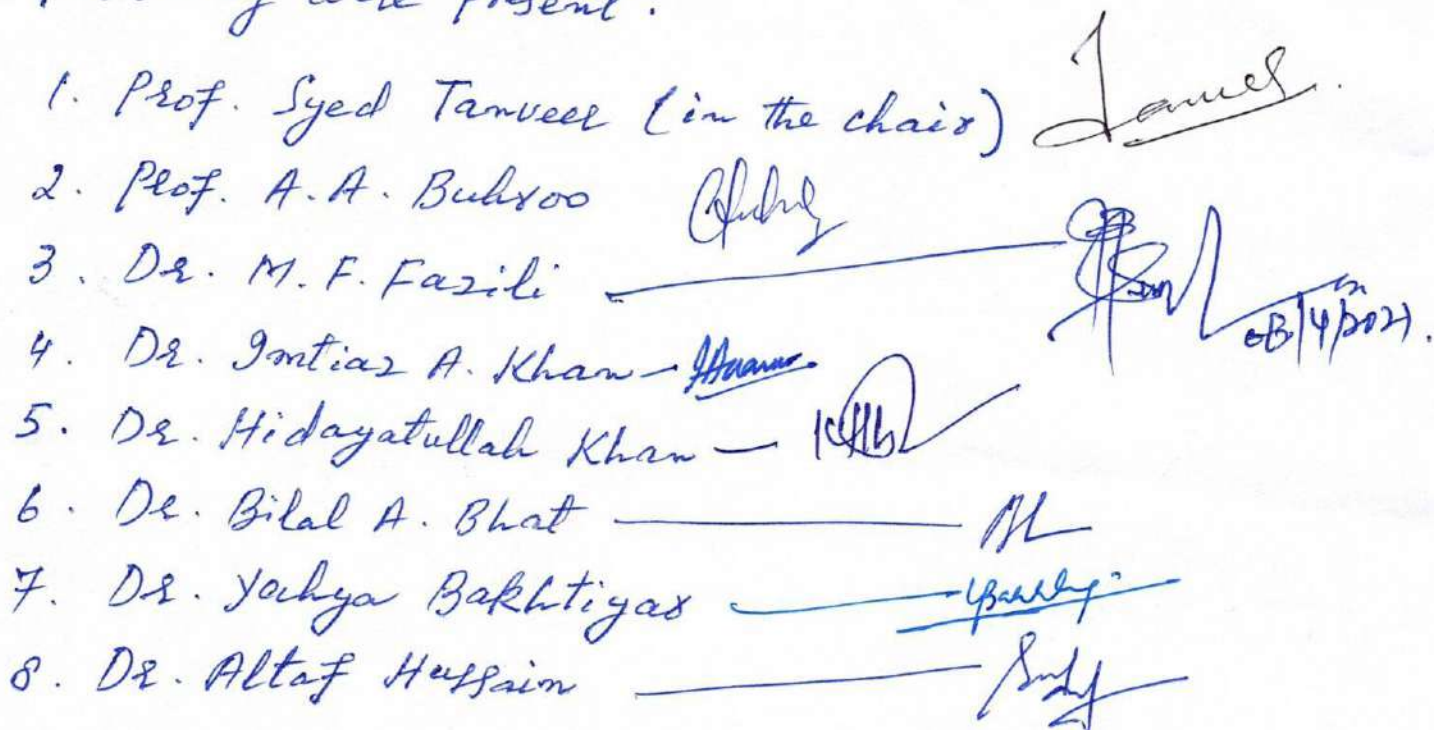 were present.
1. Prof. Syed Tanveer (in the chair)
2. Prof. A.A. Buhroo
3. Dr. M. F. Fazili
4. Dr. Imtiaz A. Khan
5. Dr. Hidayatullah Khan —
6. Dr. Bilal A. Bhat
7. Dr. Yahya Bakhtiyar
8. Dr. Altaf Hussain